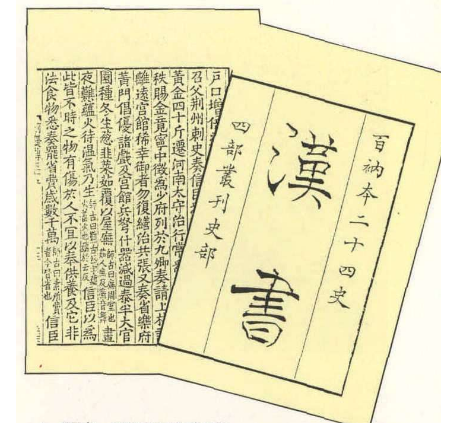 百衲本二十四史
漢書
四部叢刊史部
戶口增倍
召父荊州刺史奏信臣
黃金四十斤遷河南太守治行常爲
秩賜金竟寧中徵為少府列於九卿奏請上林
離遠宮館稀幸御者勿復繕治共張又奏省樂府
黃門倡優諸戲及宮館兵弩什器減過泰半太官
園種冬生葱韭菜茹覆以屋廡師古曰廡周室也晝
夜㸐蘊火待溫氣乃生信臣以為
此皆不時之物有傷於人不宜以奉供養及它非
法食物悉奏罷省費歲數千萬師古曰素所費者今皆省也信臣